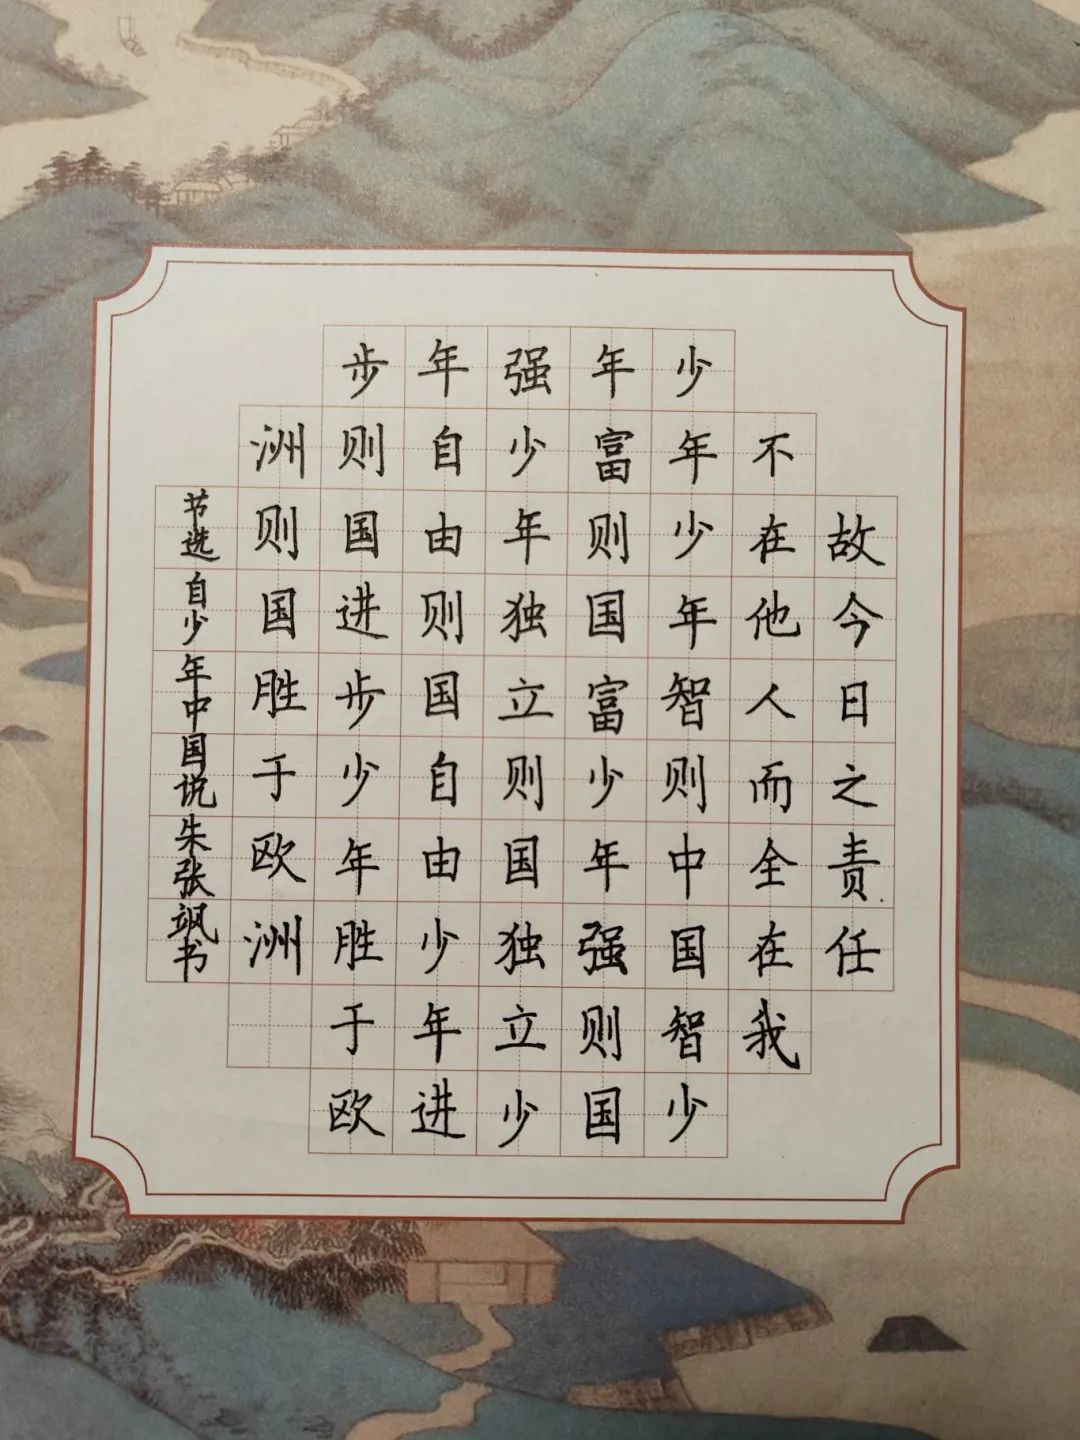 故今日之责任
不在他人而全在我
少年少年智则中国智少
年富则国富少年强则国
强少年独立则国独立少
年自由则国自由少年进
步则国进步少年胜于欧
洲则国胜于欧洲
节选自少年中国说朱张飒书